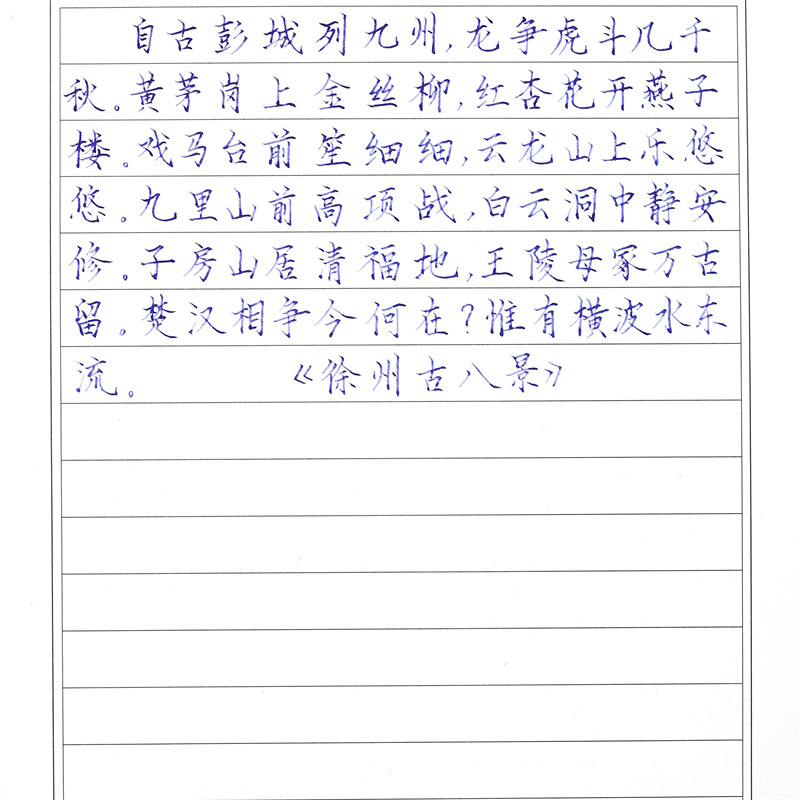 自古彭城列九州,龙争虎斗几千
秋。黄茅岗上金丝柳,红杏花开燕子
楼。戏马台前笙细细,云龙山上乐悠
悠。九里山前高项战,白云洞中静安
修。子房山居清福地,王陵母冢万古
留。楚汉相争今何在?惟有横波水东
流。 《徐州古八景》